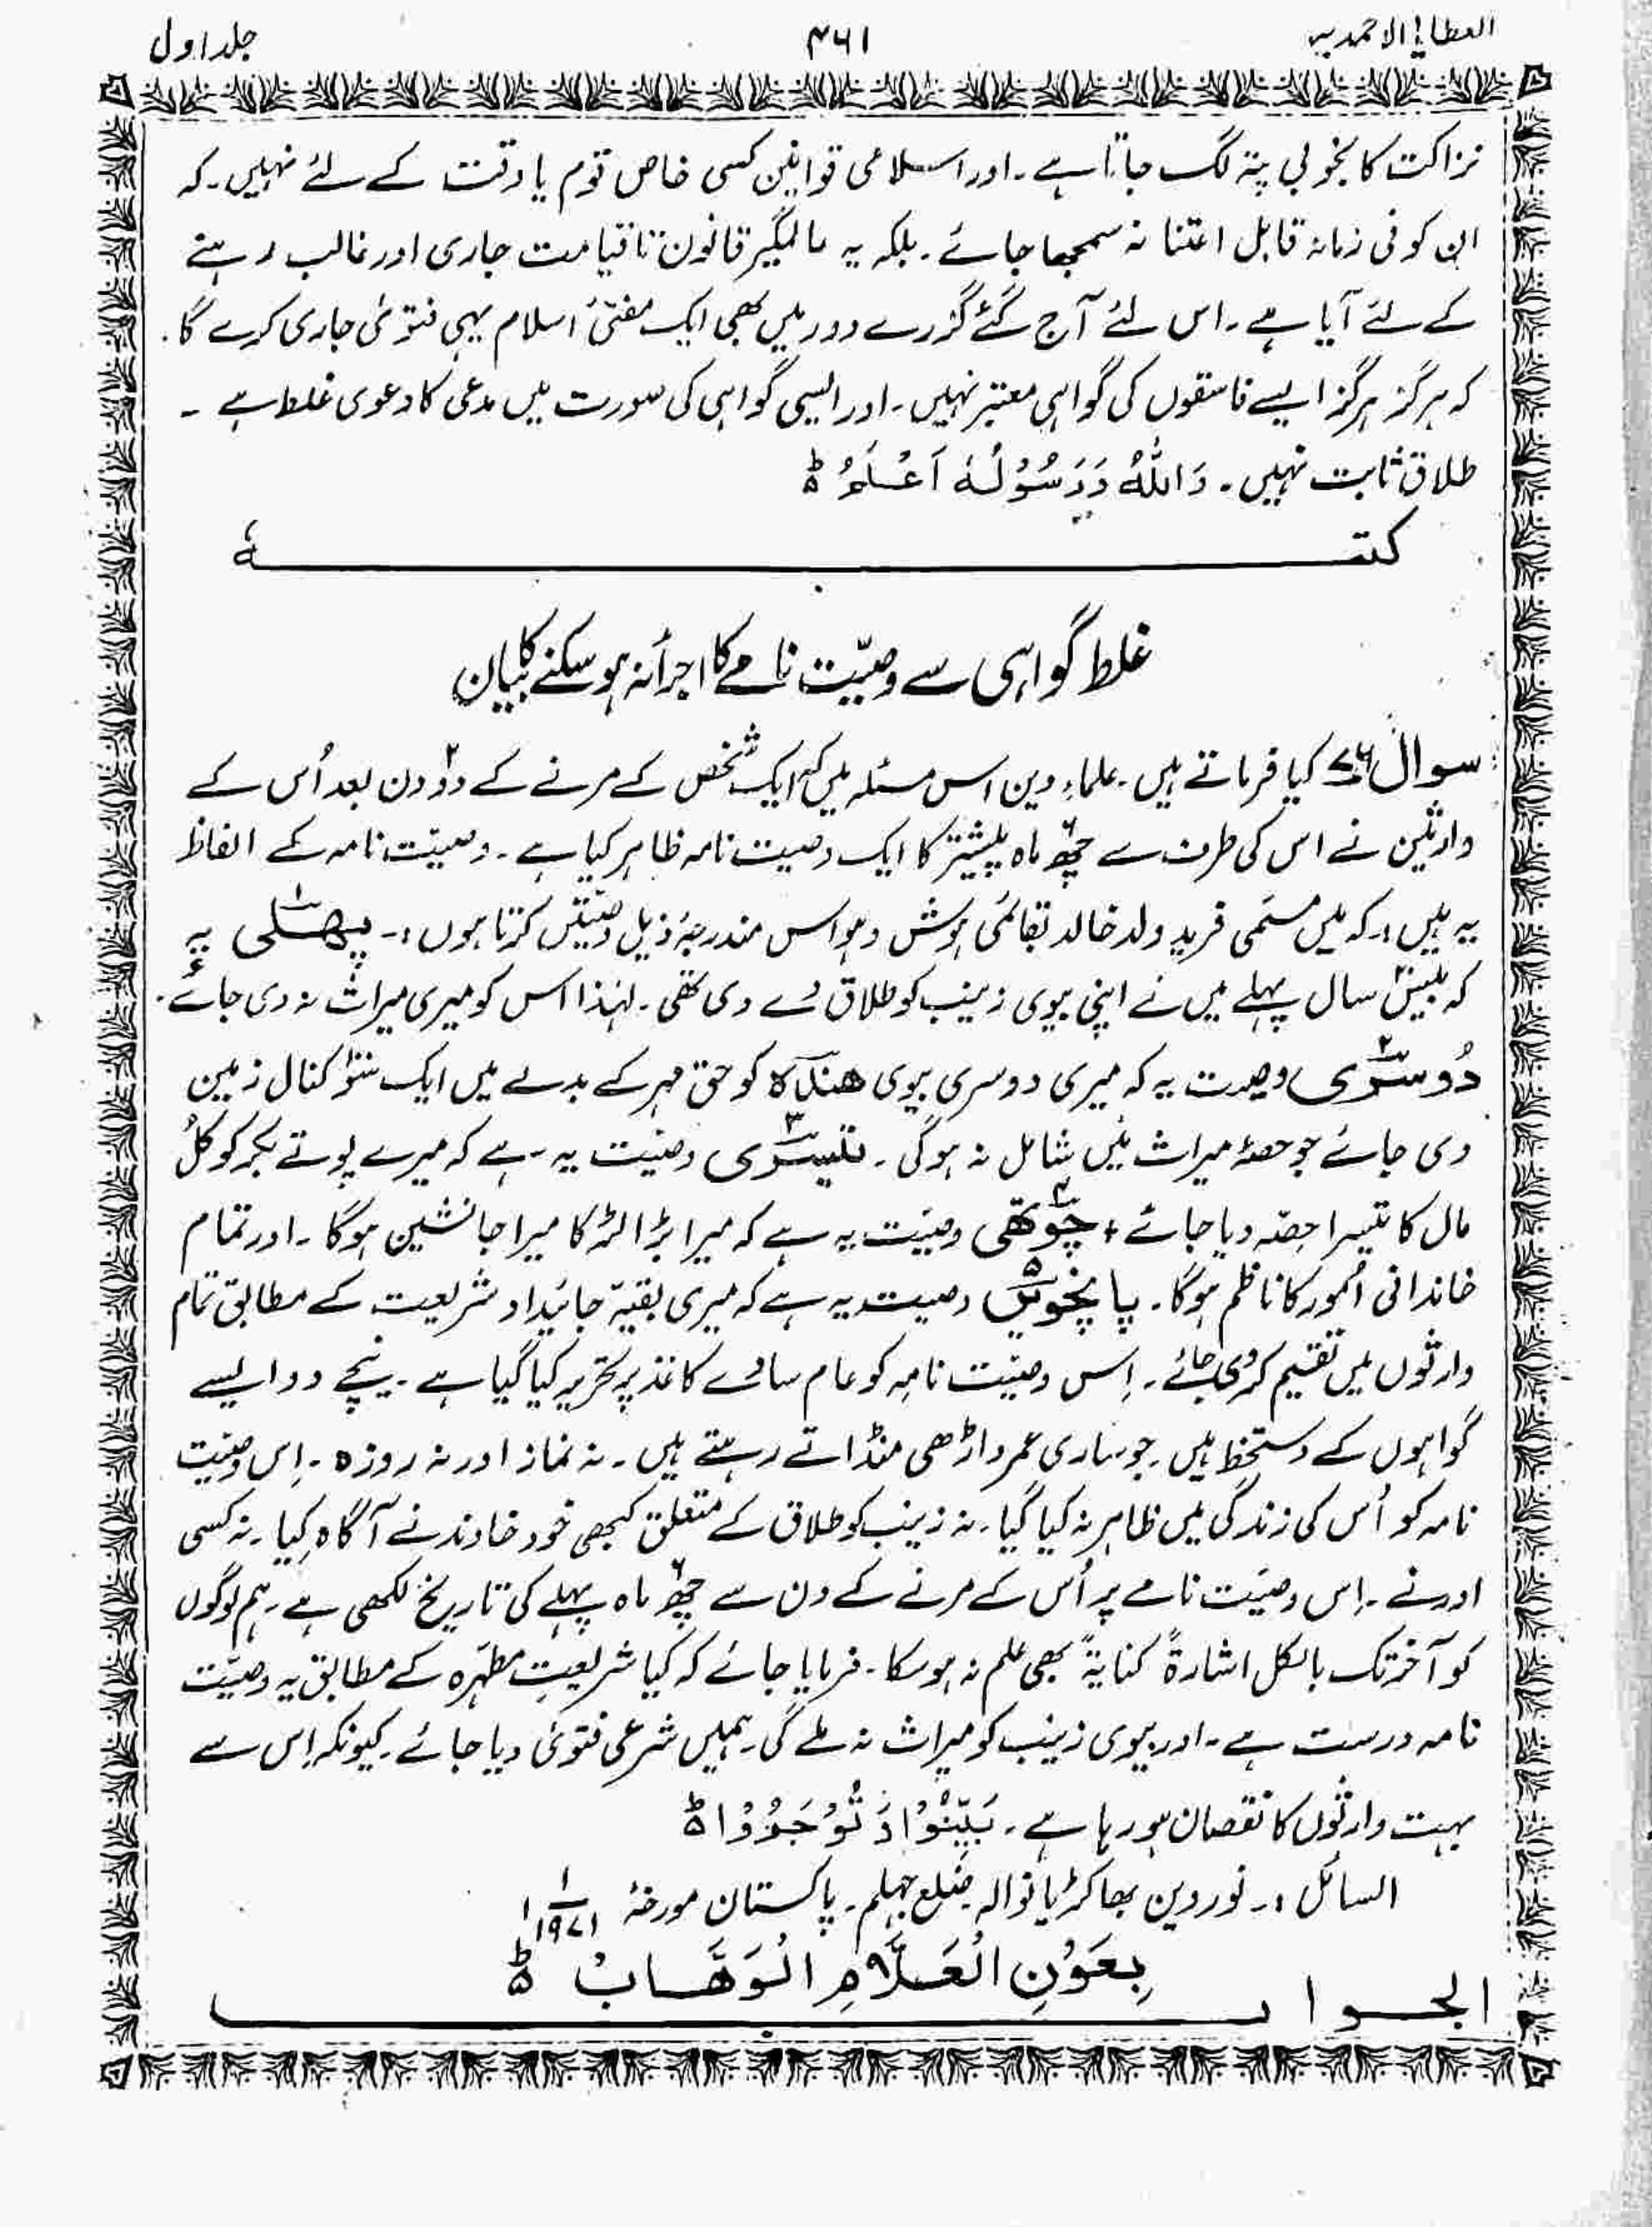 العطایا الاحمدیہ ۴۶۱ جلد اول
نزاکت کا بخوبی پتہ لگ جاتا ہے ۔ اور اسلامی قوانین کسی خاص قوم یا وقت کے لئے نہیں ۔ کہ
ان کو فی زمانہ قابل اعتنا نہ سمجھا جائے ۔ بلکہ یہ عالمگیر قانون تا قیامت جاری اور غالب رہنے
کے لئے آیا ہے ۔ اس لئے آج گئے گزرے دور میں بھی ایک مفتیٔ اسلام یہی فتویٰ جاری کرے گا ۔
کہ ہرگز ہرگز ایسے فاسقوں کی گواہی معتبر نہیں ۔ اور ایسی گواہی کی صورت میں مدعی کا دعوی غلط ہے ۔
طلاق ثابت نہیں ۔ وَاللّٰهُ وَرَسُوْلُهٗ اَعْلَمُ ؕ
کتبہٗ
غلط گواہی سے وصیّت نامے کا اجرأ نہ ہو سکنے کا بیان
سوال ۷۶ کیا فرماتے ہیں ۔ علماءِ دین اس مسئلہ میں کہ ایک شخص کے مرنے کے دو۲ دن بعد اُس کے
وارثین نے اس کی طرف سے چھ۶ ماہ پیشتر کا ایک وصیت نامہ ظاہر کیا ہے ۔ وصیّت نامہ کے الفاظ
یہ ہیں :۔ کہ میں مسمّی فرید ولد خالد بقائمیٔ ہوش و ہواس مندرجہ ذیل وصیّتیں کرتا ہوں :۔ پہلی۱ یہ
کہ بیس۲۰ سال پہلے میں نے اپنی بیوی زینب کو طلاق دے دی تھی ۔ لہٰذا اس کو میری میراث نہ دی جائے ۔
دُوسری۲ وصیت یہ کہ میری دوسری بیوی ھندہ کو حق مہر کے بدلے میں ایک سَو کنال زمین
دی جائے جو حصۂ میراث میں شامل نہ ہو گی ۔ تیسری۳ وصیّت یہ ہے کہ میرے پوتے بکر کو کُل
مال کا تیسرا حِصّہ دیا جائے ، چوتھی۴ وصیّت یہ ہے کہ میرا بڑا لڑکا میرا جانشین ہوگا ۔ اور تمام
خاندانی اُمور کا ناظم ہوگا ۔ پانچویں۵ وصیت یہ ہے کہ میری بقیّہ جائیداد شریعت کے مطابق تمام
وارثوں میں تقسیم کر دی جائے ۔ اِس وصیّت نامہ کو عام سادے کاغذ پر تحریر کیا گیا ہے ۔ نیچے دو ایسے
گواہوں کے دستخط ہیں ۔ جو ساری عمر داڑھی منڈاتے رہتے ہیں ۔ نہ نماز اور نہ روزہ ۔ اِس وصیّت
نامہ کو اُس کی زندگی میں ظاہر نہ کیا گیا ۔ نہ زینب کو طلاق کے متعلق کبھی خود خاوند نے آگاہ کِیا ۔ نہ کسی
اور نے ۔ اِس وصیّت نامے پر اُس کے مرنے کے دن سے چھ۶ ماہ پہلے کی تاریخ لکھی ہے ۔ ہم لوگوں
کو آخر تک بالکل اشارۃً کنایۃً بھی علم نہ ہو سکا ۔ فرمایا جائے کہ کیا شریعتِ مطہّرہ کے مطابق یہ وصیّت
نامہ درست ہے ۔ اور بیوی زینب کو میراث نہ ملے گی ۔ ہمیں شرعی فتویٰ دیا جائے ۔ کیونکہ اِس سے
بہت وارثوں کا نقصان ہو رہا ہے ۔ بَیِّنُوْا وَ تُوْجَرُوْا ؕ
السائل :۔ نور دین بھاکڑیانوالہ ضلع جہلم ۔ پاکستان مورخۂ ۱/۱/۱۹۷۱
بِعَوْنِ الْعَلَّامِ الْوَهَّابْ ؕ
الجواب